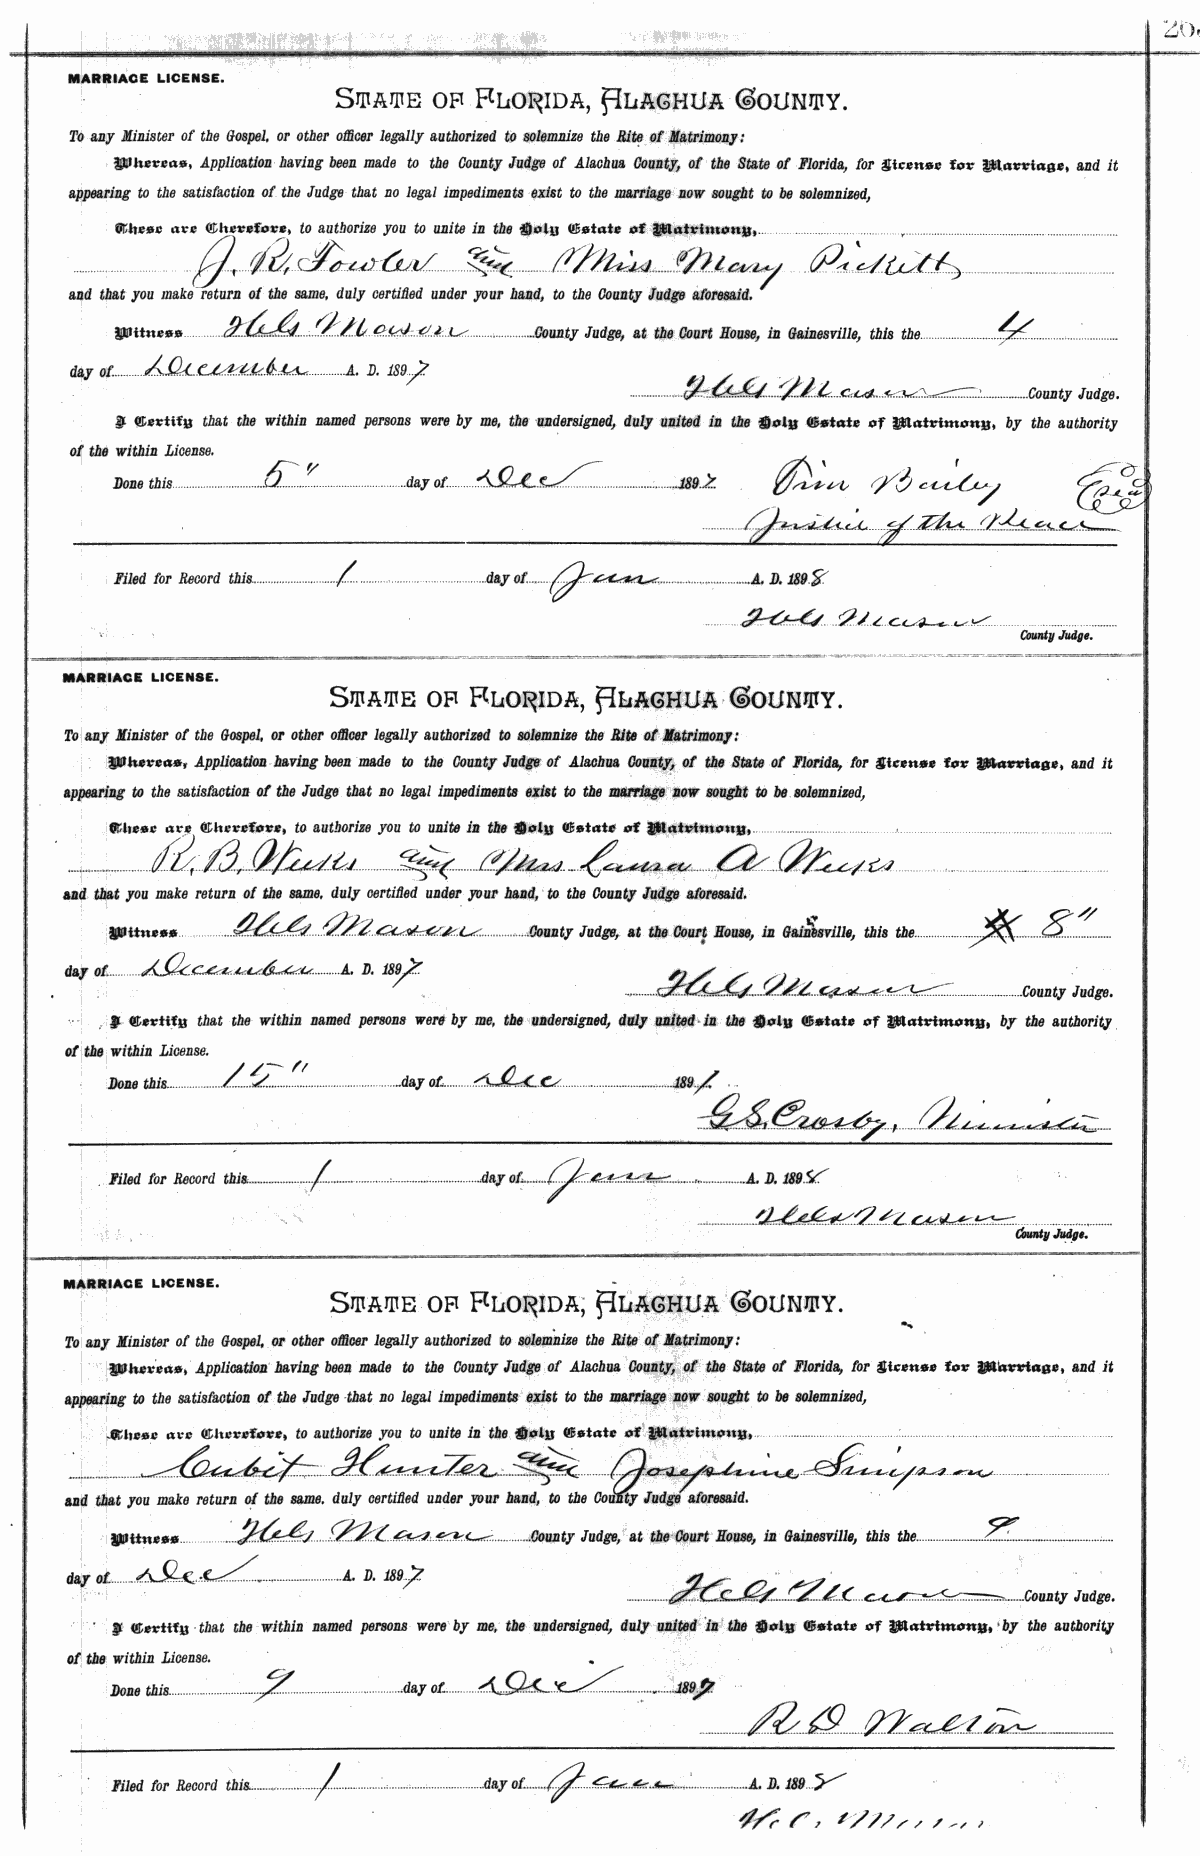 MARRIAGE LICENSE.
STATE OF FLORIDA, ALACHUA COUNTY.
To any Minister of the Gospel, or other officer legally authorized to solemnize the Rite of Matrimony:
Whereas, Application having been made to the County Judge of Alachua County, of the State of Florida, for License for Marriage, and it
appearing to the satisfaction of the Judge that no legal impediments exist to the marriage now sought to be solemnized,
These are Therefore, to authorize you to unite in the Holy Estate of Matrimony,
J. R. Fowler and Miss Mary Pickett
and that you make return of the same, duly certified under your hand, to the County Judge aforesaid.
Witness Mason County Judge, at the Court House, in Gainesville, this the 4
day of December A. D. 1897
Mason County Judge.
I Certify that the within named persons were by me, the undersigned, duly united in the Holy Estate of Matrimony, by the authority
of the within License.
Done this 5" day of Dec 1897 Tim Bailey (Seal)
Justice of the Peace
Filed for Record this 1 day of Jan A. D. 1898
Mason
County Judge.
MARRIAGE LICENSE.
STATE OF FLORIDA, ALACHUA COUNTY.
To any Minister of the Gospel, or other officer legally authorized to solemnize the Rite of Matrimony:
Whereas, Application having been made to the County Judge of Alachua County, of the State of Florida, for License for Marriage, and it
appearing to the satisfaction of the Judge that no legal impediments exist to the marriage now sought to be solemnized,
These are Therefore, to authorize you to unite in the Holy Estate of Matrimony,
R. B. Weeks and Mrs Laura A Weeks
and that you make return of the same, duly certified under your hand, to the County Judge aforesaid.
Witness Mason County Judge, at the Court House, in Gainesville, this the 8"
day of December A. D. 1897
Mason County Judge.
I Certify that the within named persons were by me, the undersigned, duly united in the Holy Estate of Matrimony, by the authority
of the within License.
Done this 15" day of Dec 1897.
G. S. Crosby, Minister
Filed for Record this 1 day of Jan A. D. 1898
Mason
County Judge.
MARRIAGE LICENSE.
STATE OF FLORIDA, ALACHUA COUNTY.
To any Minister of the Gospel, or other officer legally authorized to solemnize the Rite of Matrimony:
Whereas, Application having been made to the County Judge of Alachua County, of the State of Florida, for License for Marriage, and it
appearing to the satisfaction of the Judge that no legal impediments exist to the marriage now sought to be solemnized,
These are Therefore, to authorize you to unite in the Holy Estate of Matrimony,
Cubit Hunter and Josephine Simpson
and that you make return of the same, duly certified under your hand, to the County Judge aforesaid.
Witness Mason County Judge, at the Court House, in Gainesville, this the 9
day of Dec A. D. 1897
Mason County Judge.
I Certify that the within named persons were by me, the undersigned, duly united in the Holy Estate of Matrimony, by the authority
of the within License.
Done this 9 day of Dec 1897
R D Walton
Filed for Record this 1 day of Jan A. D. 1898
Mason